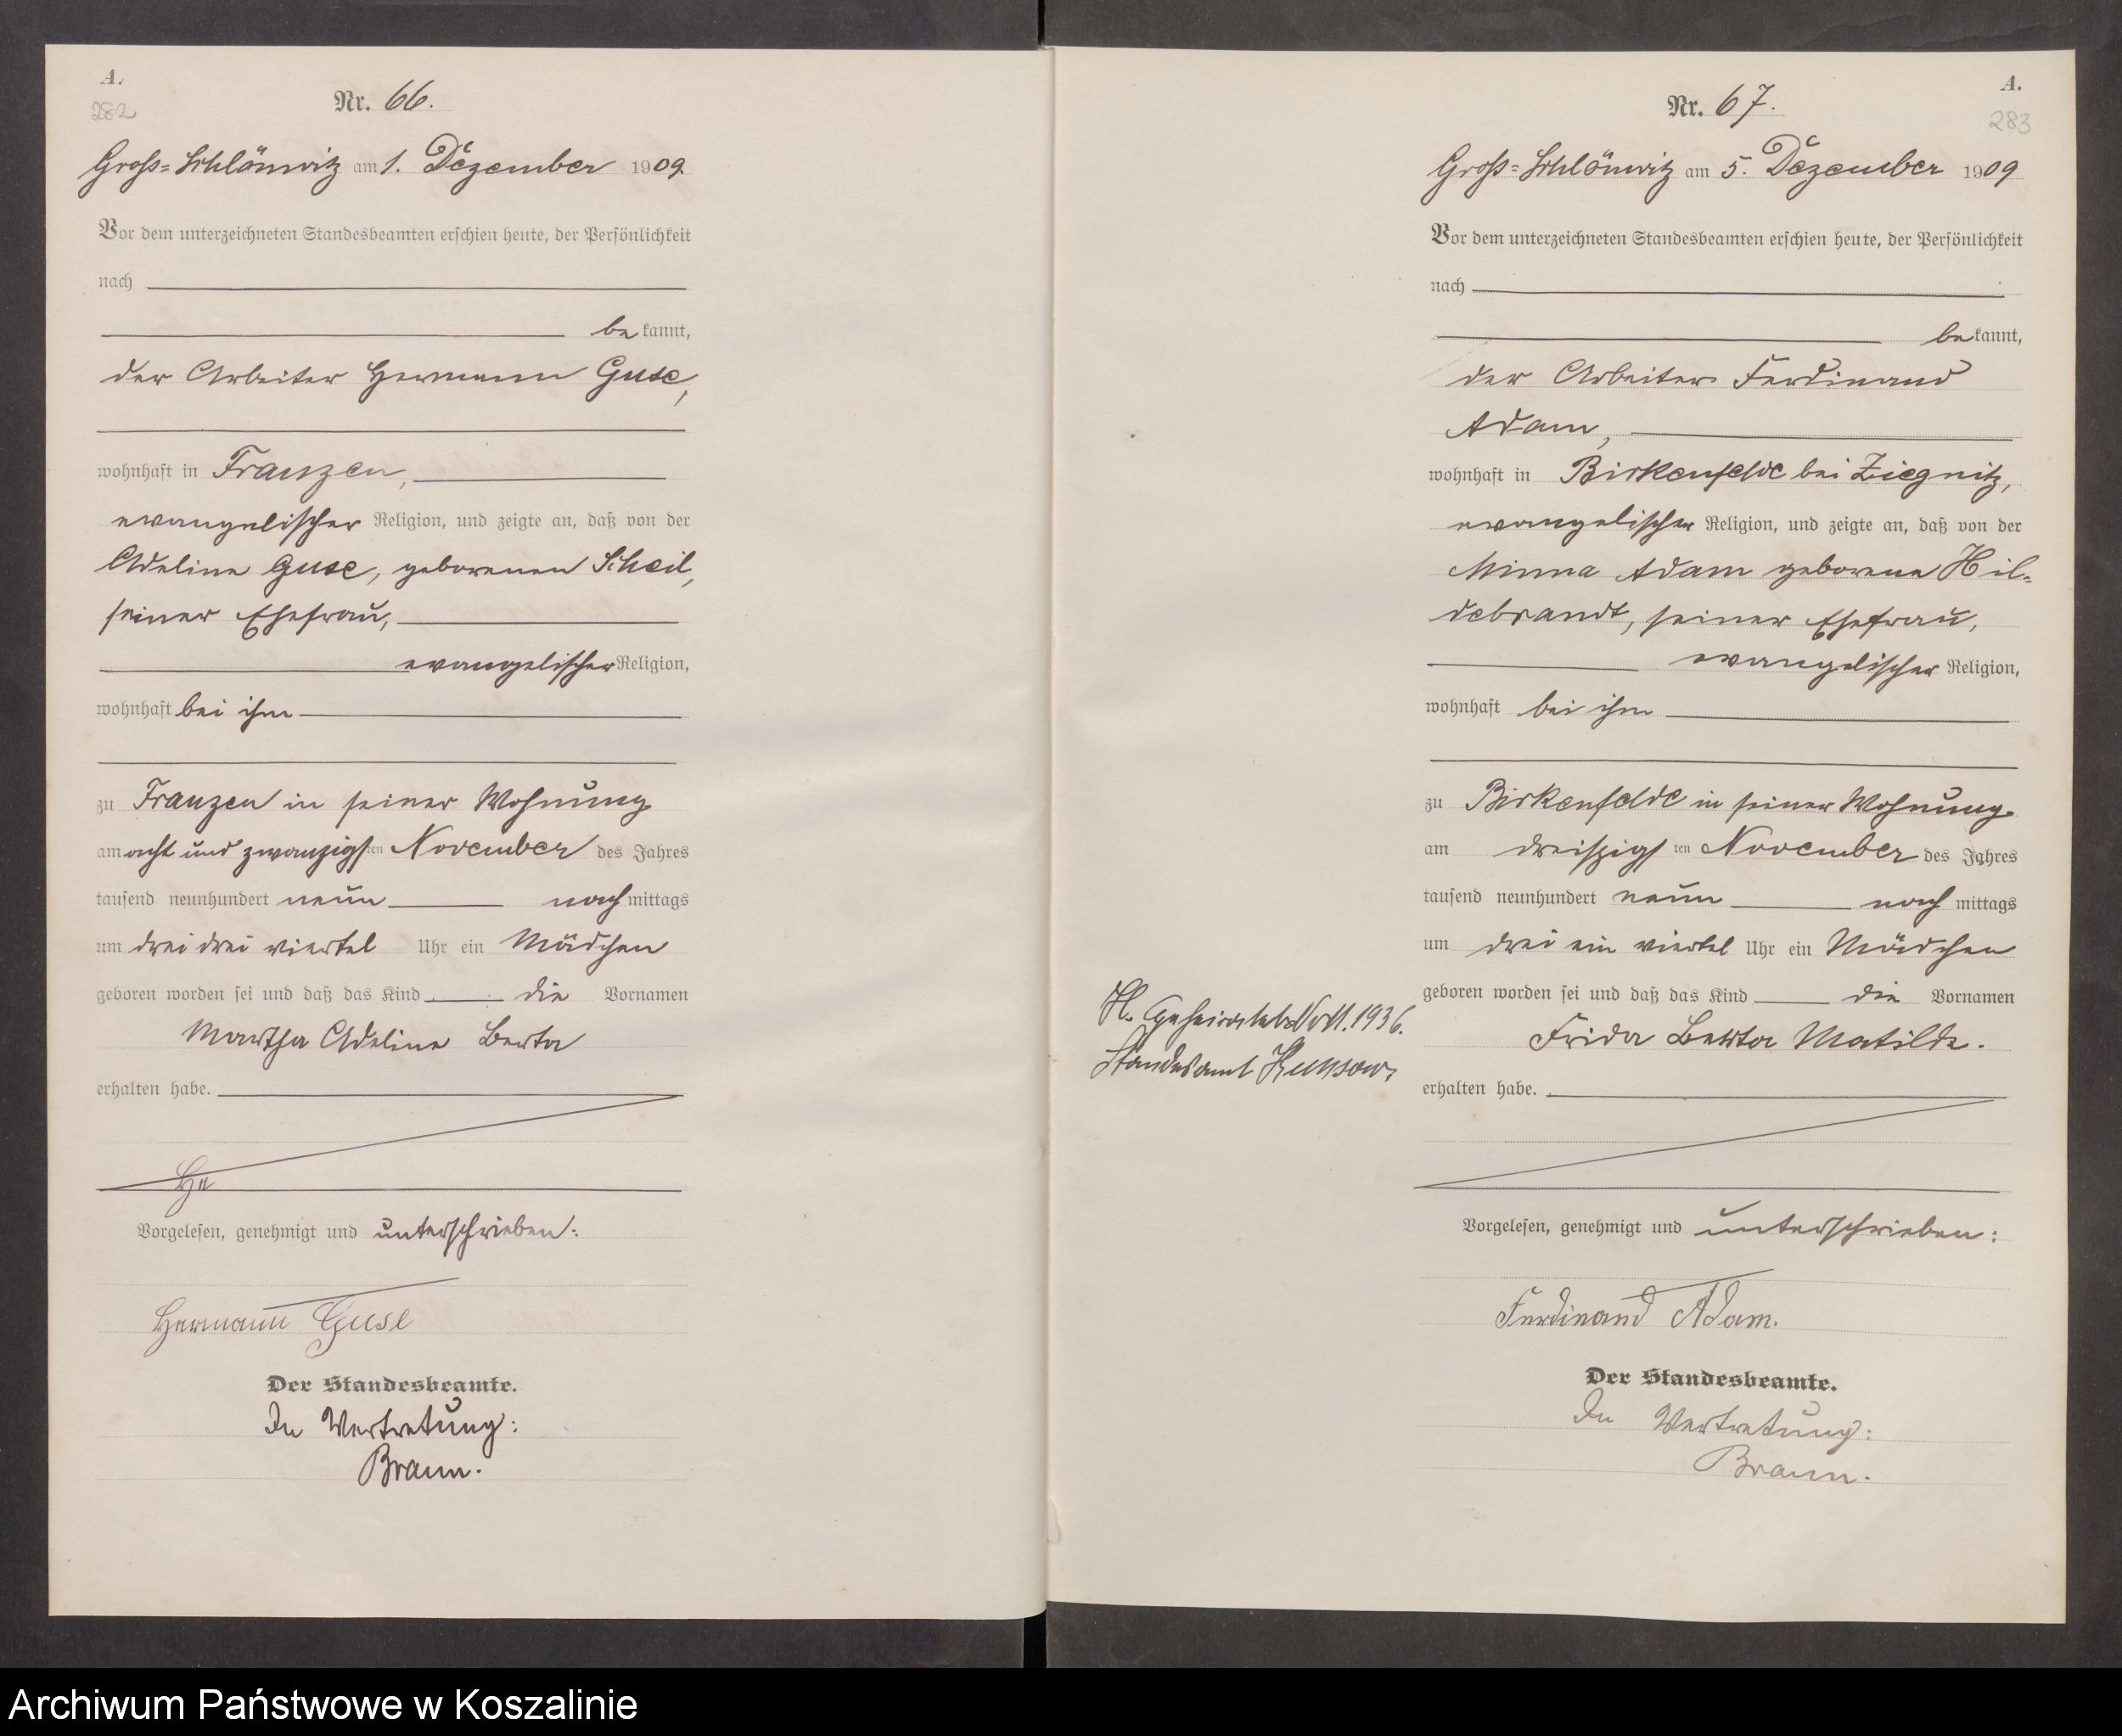 A.
282
Nr. 66.
Groß-Schlönwitz am 1. Dezember 1909
Vor dem unterzeichneten Standesbeamten erschien heute, der Persönlichkeit
nach
be kannt,
der Arbeiter Hermann Guse,
wohnhaft in Franzen,
evangelischer Religion, und zeigte an, daß von der
Adeline Guse, geborenen Scheil,
seiner Ehefrau,
evangelischer Religion,
wohnhaft bei ihm
zu Franzen in seiner Wohnung
am acht und zwanzigsten November des Jahres
tausend neunhundert neun nach mittags
um drei drei viertel Uhr ein Mädchen
geboren worden sei und daß das Kind die Vornamen
Martha Adeline Berta
erhalten habe.
He
Vorgelesen, genehmigt und unterschrieben:
Hermann Guse
Der Standesbeamte.
In Vertretung:
Braun.
A.
283
Nr. 67.
Groß-Schlönwitz am 5. Dezember 1909
Vor dem unterzeichneten Standesbeamten erschien heute, der Persönlichkeit
nach
be kannt,
der Arbeiter Ferdinand
Adam,
wohnhaft in Birkenfelde bei Ziegnitz,
evangelischer Religion, und zeigte an, daß von der
Minna Adam geborene Hil-
debrandt, seiner Ehefrau,
evangelischer Religion,
wohnhaft bei ihm
zu Birkenfelde in seiner Wohnung
am dreiszigsten November des Jahres
tausend neunhundert neun nach mittags
um drei ein viertel Uhr ein Mädchen
geboren worden sei und daß das Kind die Vornamen
Frida Berta Matilde.
erhalten habe.
Vorgelesen, genehmigt und unterschrieben:
Ferdinand Adam.
Der Standesbeamte.
In Vertretung:
Braun.
1936.
Standesamt
Archiwum Państwowe w Koszalinie